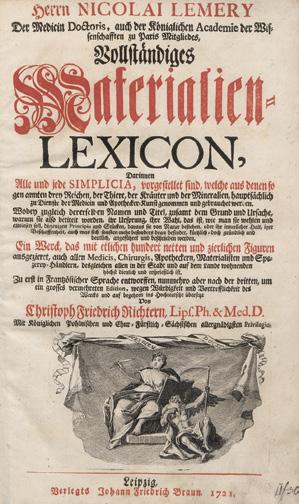 Herrn NICOLAI LEMERY
Der Medicin Doctoris, auch der Königlichen Academie der Wis-
senschafften zu Paris Mitgliedes,
Vollständiges
Materialien-
LEXICON,
Darinnen
Alle und jede SIMPLICIA, vorgestellet sind, welche aus denen so
genannten dreyen Reichen, der Thiere, der Kräuter und der Mineralien, hauptsächlich
zu Dienste der Medicin und Apothecker-Kunst genommen und gebrauchet werden.
Wobey zugleich derselben Namen und Titel, zusamt dem Grund und Ursache,
warum sie also benennt worden, ihr Ursprung, ihre Wahl, das ist, wie man sie wehlen und
Ein Werck, das mit etlichen hundert netten und zierlichen Figuren
ausgezieret, auch allen Medicis, Chirurgis, Apotheckern, Materialisten und Spe-
cerey-Händlern, desgleichen allen in der Stadt und auf dem Lande wohnenden
höchst dienlich und ersprießlich ist.
Zu erst in Frantzösischer Sprache entworffen, nunmehro aber nach der dritten, um
ein grosses vermehreten Edition, wegen Würdigkeit und Vortrefflichkeit des
Wercks und auf begehren ins Hochteutsche übersetzt
Von
Christoph Friedrich Richtern, Lips. Ph. & Med. D.
Mit Königlichen Pohlnischen und Chur-Fürstlich-Sächsischen allergnädigsten Privilegio.
Leipzig,
Verlegts Johann Friedrich Braun 1721,